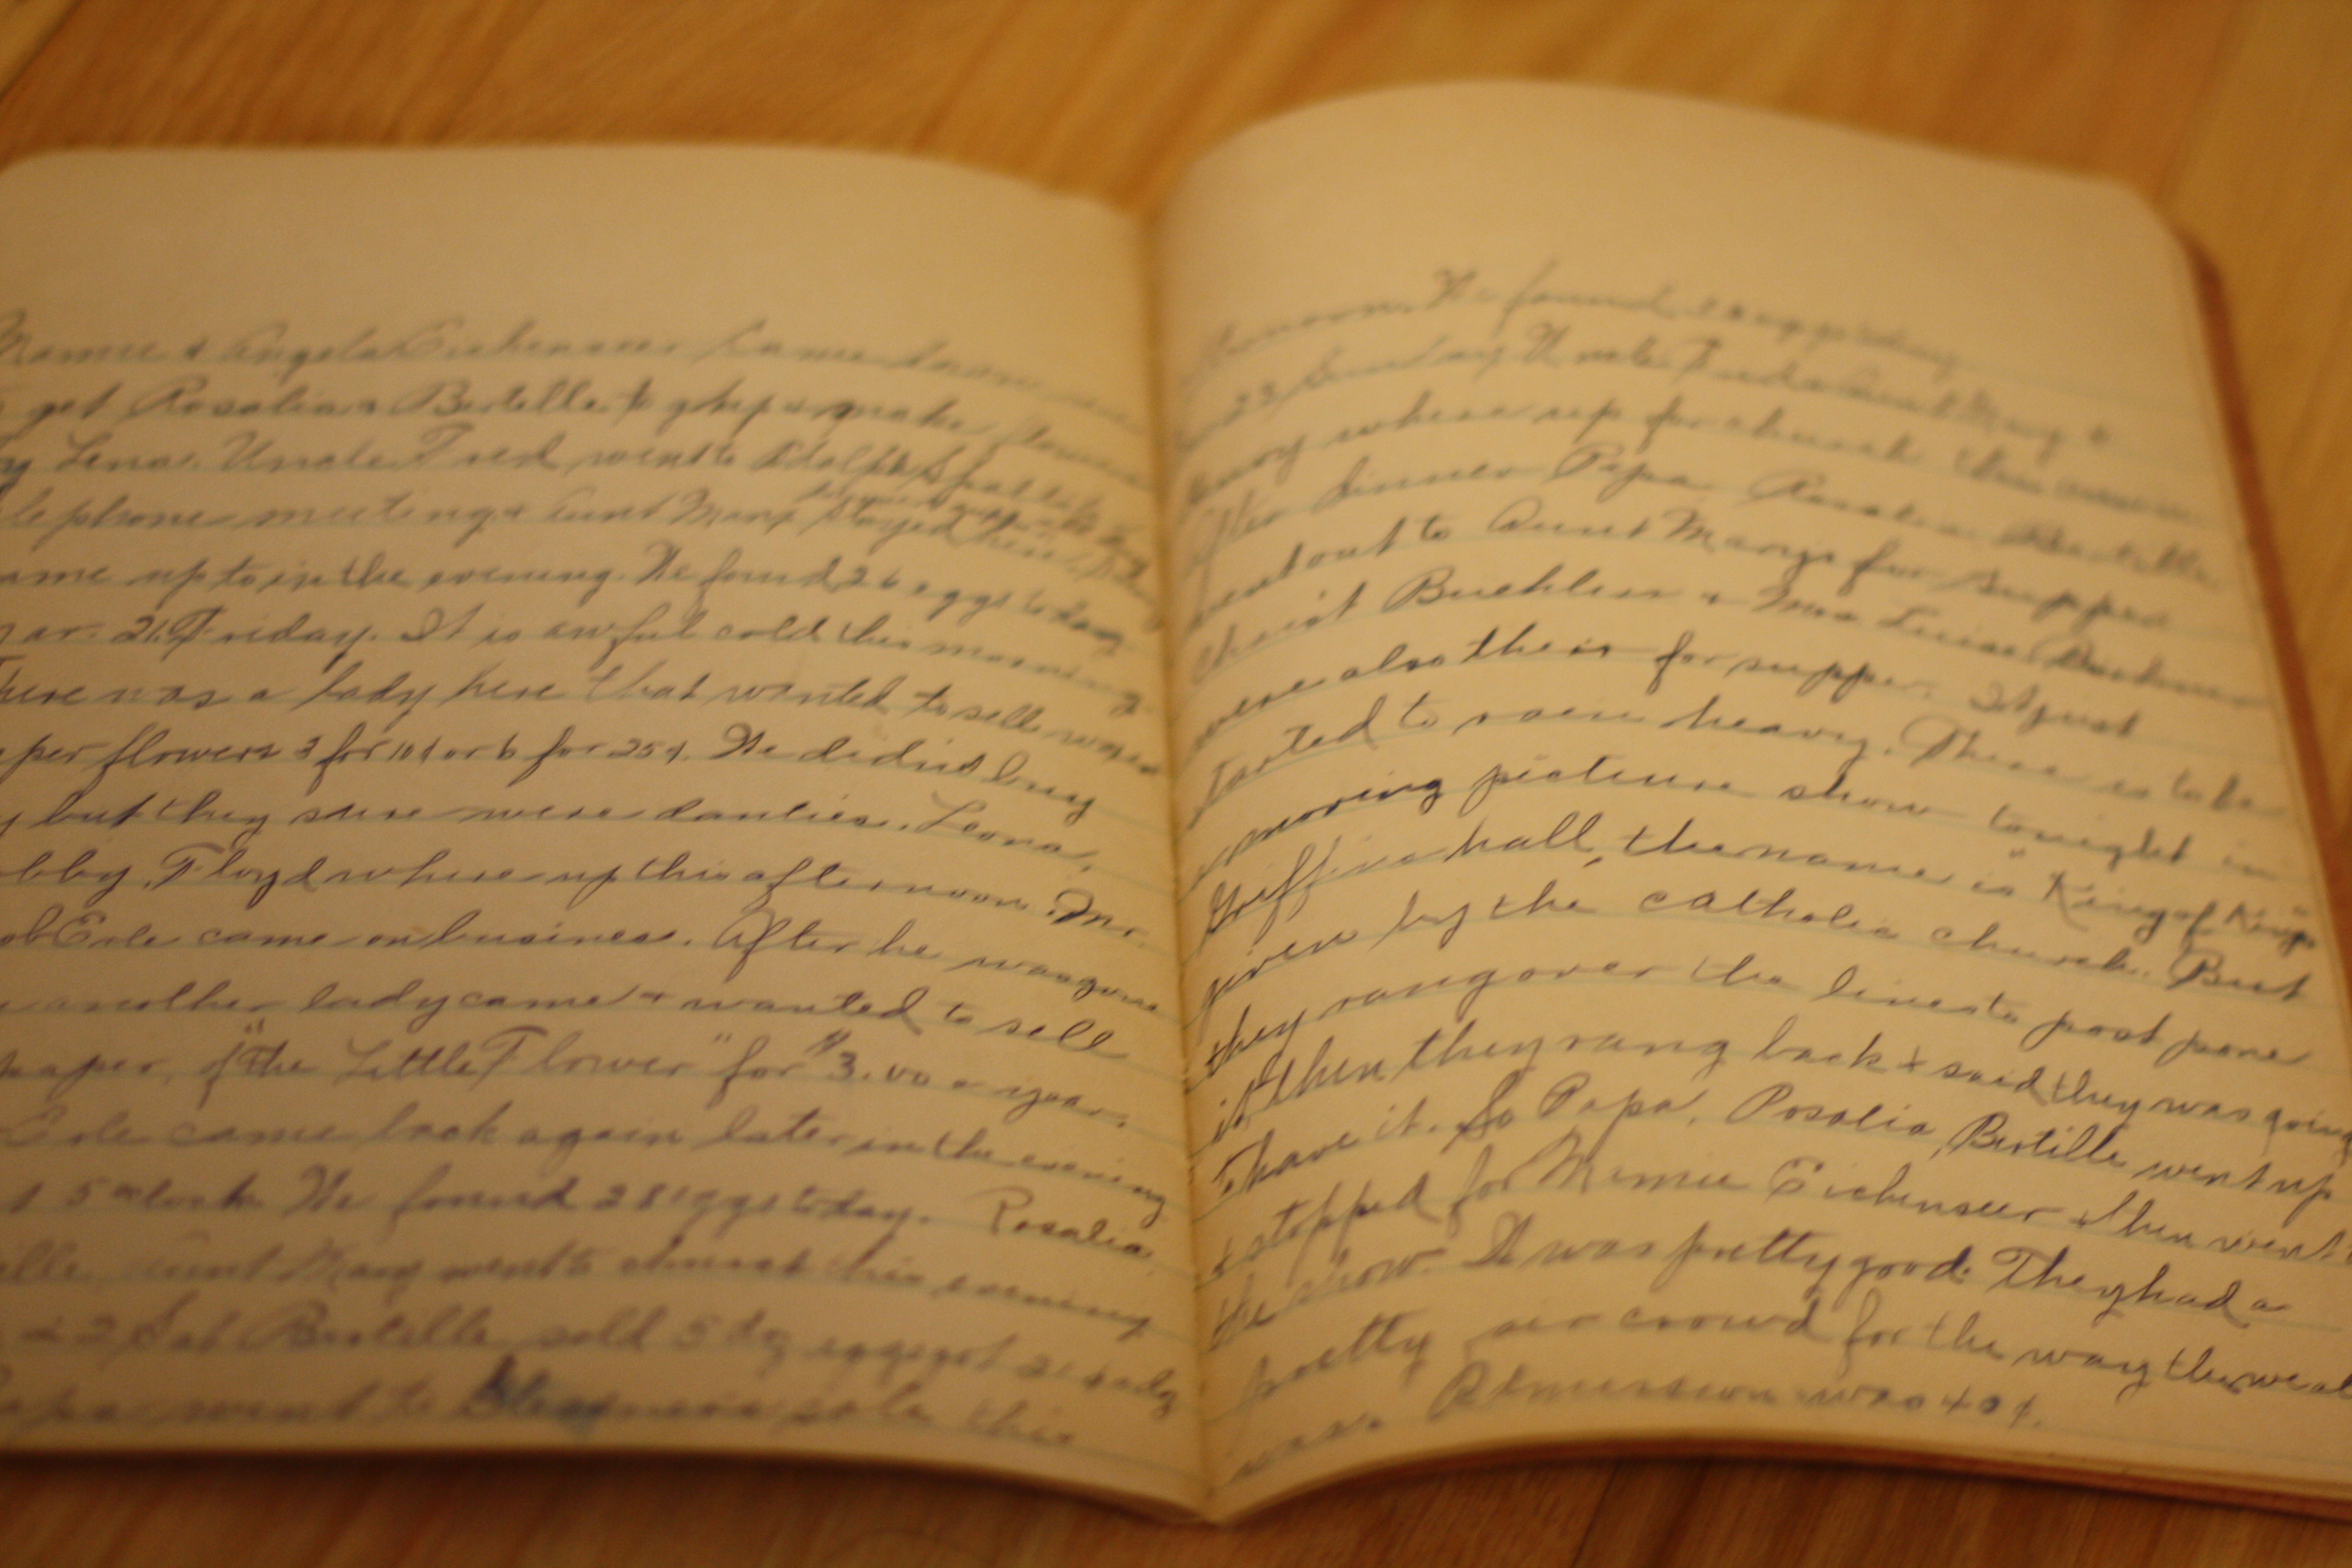 Mamie & Angela Eichenseer came down
get Rosalia & Bertille to help make flowers
Lena. Uncle Fred went to Adolph
telephone meeting & Aunt Mary stayed here
came up to in the evening. We found 26 eggs today
Mar. 21. Friday. It is awful cold this morning
here was a lady here that wanted to sell
per flowers 3 for 10¢ or 6 for 25¢. We didnt buy
but they sure were danties. Leona,
Floyd where up this afternoon. Mr.
Erle came on business. After he was gone
another lady came & wanted to sell
paper, of "the Little Flower" for $3.00 a year.
Erle came back again later in the evening
5 oclock. We found 28 eggs today. Rosalia
Aunt Mary went to church this evening
22 Sat Bertille sold 5 dz eggs got
went to sale this
We found eggs today
23 Sunday Uncle Fred & Aunt Mary &
where up for church this
After dinner Papa, Rosalia Bertille
went out to Aunt Marys for supper
Christ Buehler & Mrs Luise
were also their for supper. It just
started to raen heavy. There is to be
a moving picture show tonight in
Griffins hall, the name is "King of Kings"
given by the catholic church. But
they rang over the line to post pone
it then they rang back & said they was going
to have it. So Papa, Rosalia Bertille went up
& stopped for Mamie Eichenseer & then went
the show. It was pretty good. They had a
pretty crowd for the way the
was. Admission was 40¢.